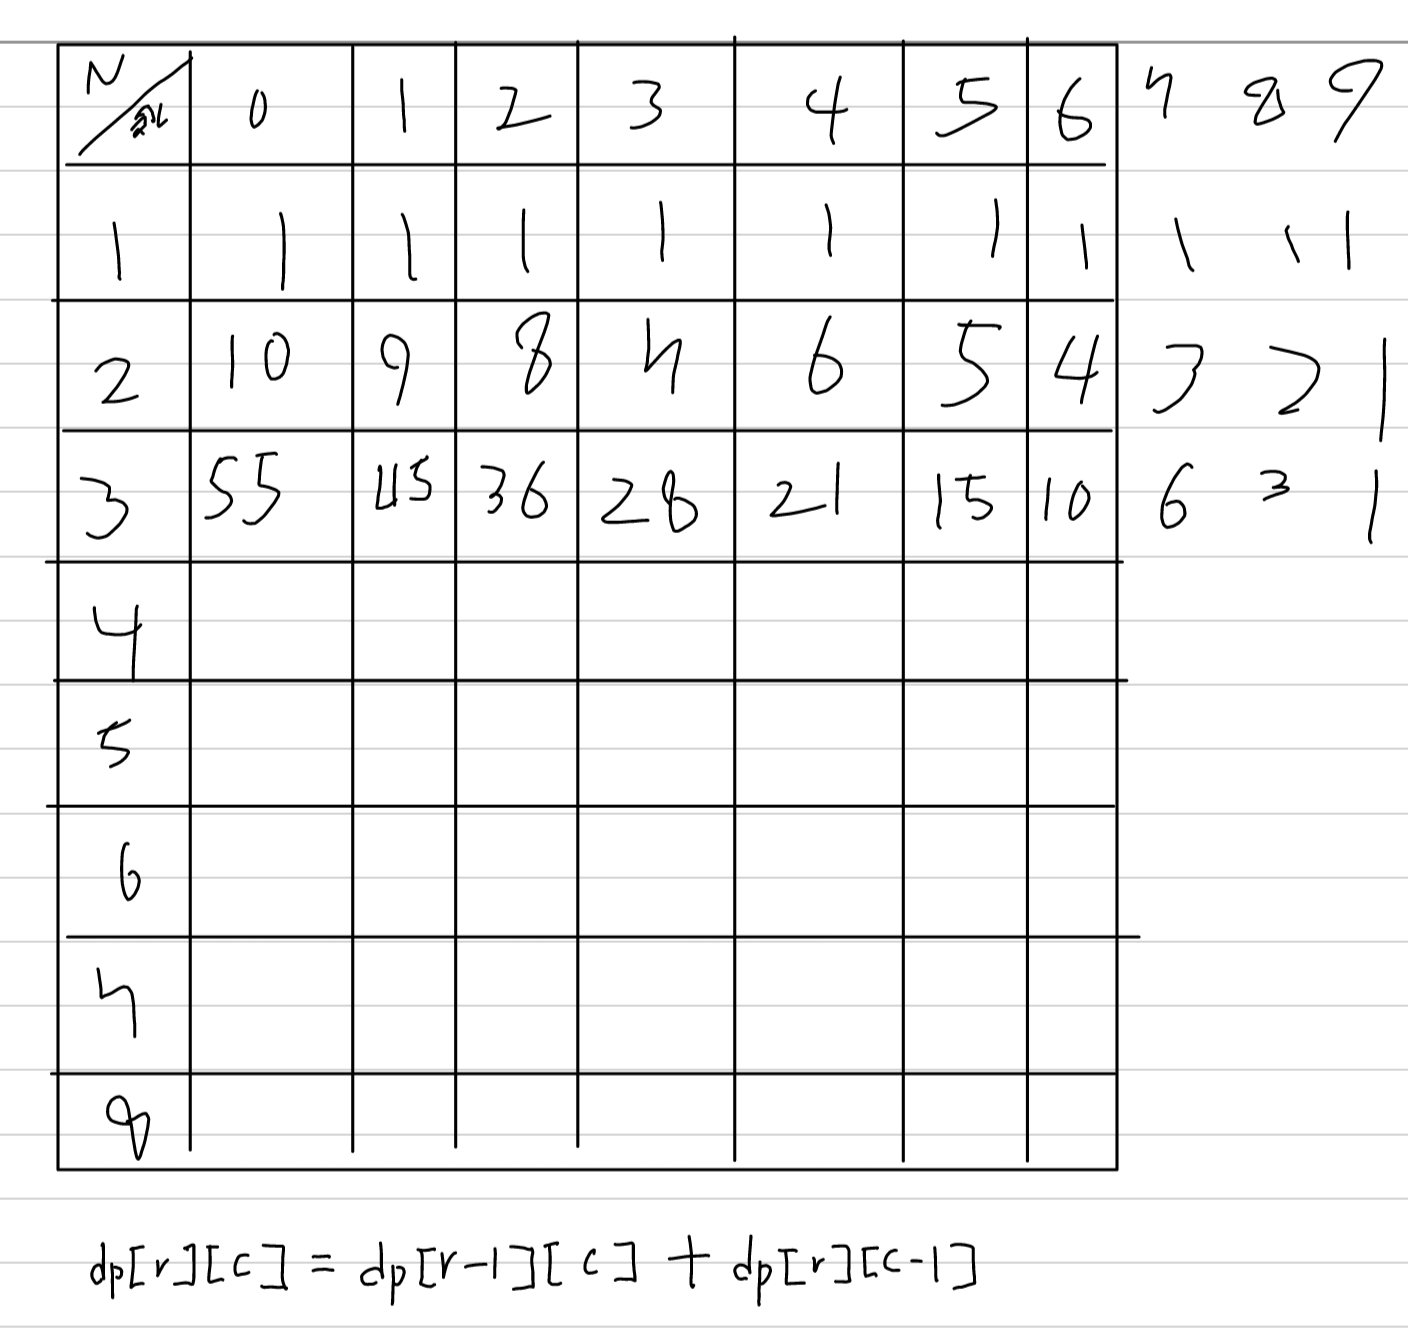 N 0 1 2 3 4 5 6 7 8 9
1 1 1 1 1 1 1 1 1 1 1
2 10 9 8 7 6 5 4 3 2 1
3 55 45 36 28 21 15 10 6 3 1
4
5
6
7
8
dp[r][c] = dp[r-1][c] + dp[r][c-1]